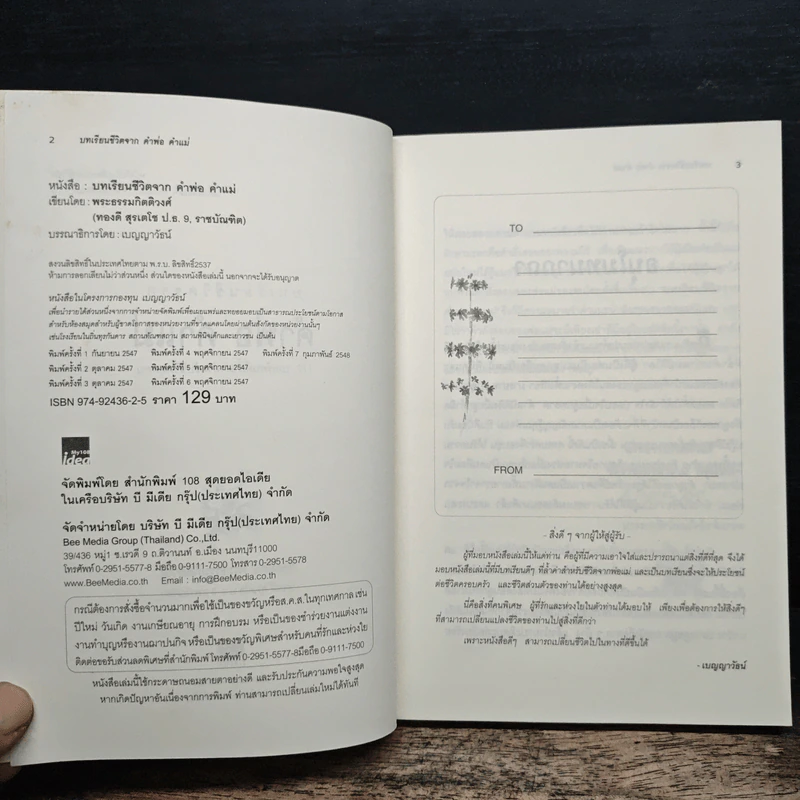 2 บทเรียนชีวิตจาก คำพ่อ คำแม่
หนังสือ : บทเรียนชีวิตจาก คำพ่อ คำแม่
เขียนโดย : พระธรรมกิตติวงศ์
(ทองดี สุรเตโช ป.ธ. 9, ราชบัณฑิต)
บรรณาธิการโดย : เบญญาวัธน์
สงวนลิขสิทธิ์ในประเทศไทยตาม พ.ร.บ. ลิขสิทธิ์2537
ห้ามการลอกเลียนไม่ว่าส่วนหนึ่ง ส่วนใดของหนังสือเล่มนี้ นอกจากจะได้รับอนุญาต
หนังสือในโครงการกองทุน เบญญาวัธน์
เพื่อนำรายได้ส่วนหนึ่งจากการจำหน่ายจัดพิมพ์เพื่อเผยแพร่และทยอยมอบเป็นสาธารณประโยชน์ตามโอกาส
สำหรับห้องสมุดสำหรับผู้ขาดโอกาสของหน่วยงานที่ขาดแคลนโดยผ่านต้นสังกัดของหน่วยงานนั้นๆ
เช่นโรงเรียนในถิ่นทุรกันดาร สถานทัณฑสถาน สถานพินิจเด็กและเยาวชน เป็นต้น
พิมพ์ครั้งที่ 1 กันยายน 2547 พิมพ์ครั้งที่ 4 พฤศจิกายน 2547 พิมพ์ครั้งที่ 7 กุมภาพันธ์ 2548
พิมพ์ครั้งที่ 2 ตุลาคม 2547 พิมพ์ครั้งที่ 5 พฤศจิกายน 2547
พิมพ์ครั้งที่ 3 ตุลาคม 2547 พิมพ์ครั้งที่ 6 พฤศจิกายน 2547
ISBN 974-92436-2-5 ราคา 129 บาท
My108
idea
จัดพิมพ์โดย สำนักพิมพ์ 108 สุดยอดไอเดีย
ในเครือบริษัท บี มีเดีย กรุ๊ป(ประเทศไทย) จำกัด
จัดจำหน่ายโดย บริษัท บี มีเดีย กรุ๊ป(ประเทศไทย) จำกัด
Bee Media Group (Thailand) Co.,Ltd.
39/436 หมู่1 ซ.เรวดี 9 ถ.ติวานนท์ อ.เมือง นนทบุรี11000
โทรศัพท์ 0-2951-5577-8 มือถือ 0-9111-7500 โทรสาร 0-2951-5578
www.BeeMedia.co.th Email : info@BeeMedia.co.th
กรณีต้องการสั่งซื้อจำนวนมากเพื่อใช้เป็นของขวัญหรือส.ค.ส.ในทุกเทศกาล เช่น
ปีใหม่ วันเกิด งานเกษียณอายุ การฝึกอบรม หรือเป็นของชำร่วยงานแต่งงาน
งานทำบุญหรืองานฌาปนกิจ หรือเป็นของขวัญพิเศษสำหรับคนที่รักและห่วงใย
ติดต่อขอรับส่วนลดพิเศษที่สำนักพิมพ์ โทรศัพท์ 0-2951-5577-8มือถือ 0-9111-7500
หนังสือเล่มนี้ใช้กระดาษถนอมสายตาอย่างดี และรับประกันความพอใจสูงสุด
หากเกิดปัญหาอันเนื่องจากการพิมพ์ ท่านสามารถเปลี่ยนเล่มใหม่ได้ทันที
3
TO
FROM
- สิ่งดี ๆ จากผู้ให้สู่ผู้รับ -
ผู้ที่มอบหนังสือเล่มนี้ให้แด่ท่าน คือผู้ที่มีความเอาใจใส่และปรารถนาแต่สิ่งที่ดีที่สุด จึงได้
มอบหนังสือเล่มนี้ที่มีบทเรียนดีๆ ที่ล้ำค่าสำหรับชีวิตจากพ่อแม่ และเป็นบทเรียนซึ่งจะให้ประโยชน์
ต่อชีวิตครอบครัว และชีวิตส่วนตัวของท่านได้อย่างสูงสุด
นี่คือสิ่งที่คนพิเศษ ผู้ที่รักและห่วงใยในตัวท่านได้มอบให้ เพียงเพื่อต้องการให้สิ่งดีๆ
ที่สามารถเปลี่ยนแปลงชีวิตของท่านไปสู่สิ่งที่ดีกว่า
เพราะหนังสือดีๆ สามารถเปลี่ยนชีวิตไปในทางที่ดีขึ้นได้
- เบญญาวัธน์